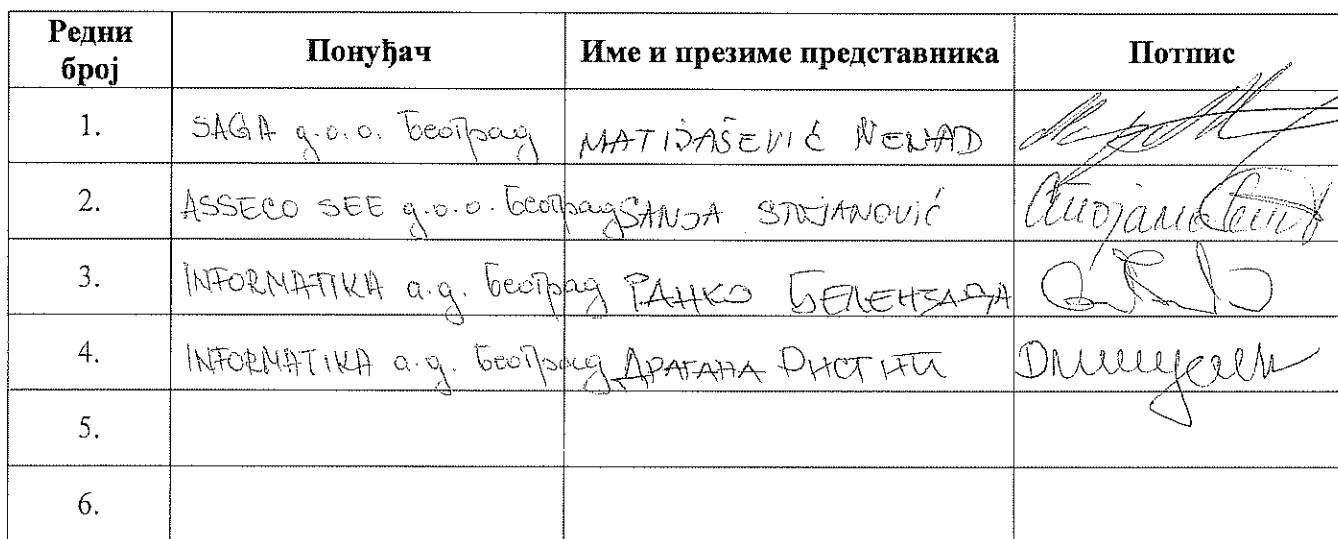 Редни број Понуђач Име и презиме представника Потпис
1. SAGA д.о.о. Београд MATIJAŠEVIĆ NENAD
2. ASSECO SEE д.о.о. Београд SANJA STOJANOVIĆ
3. INFORMATIKA а.д. Београд РАНКО
4. INFORMATIKA а.д. Београд ДРАГАНА
5.
6.